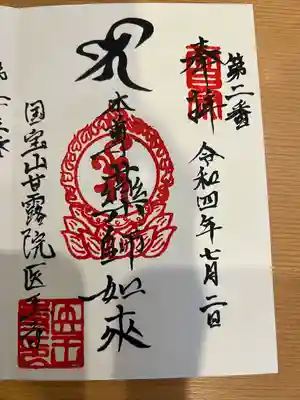 第二番
奉拝
令和四年七月二日
本尊
薬師如来
国宝山甘露院医王寺